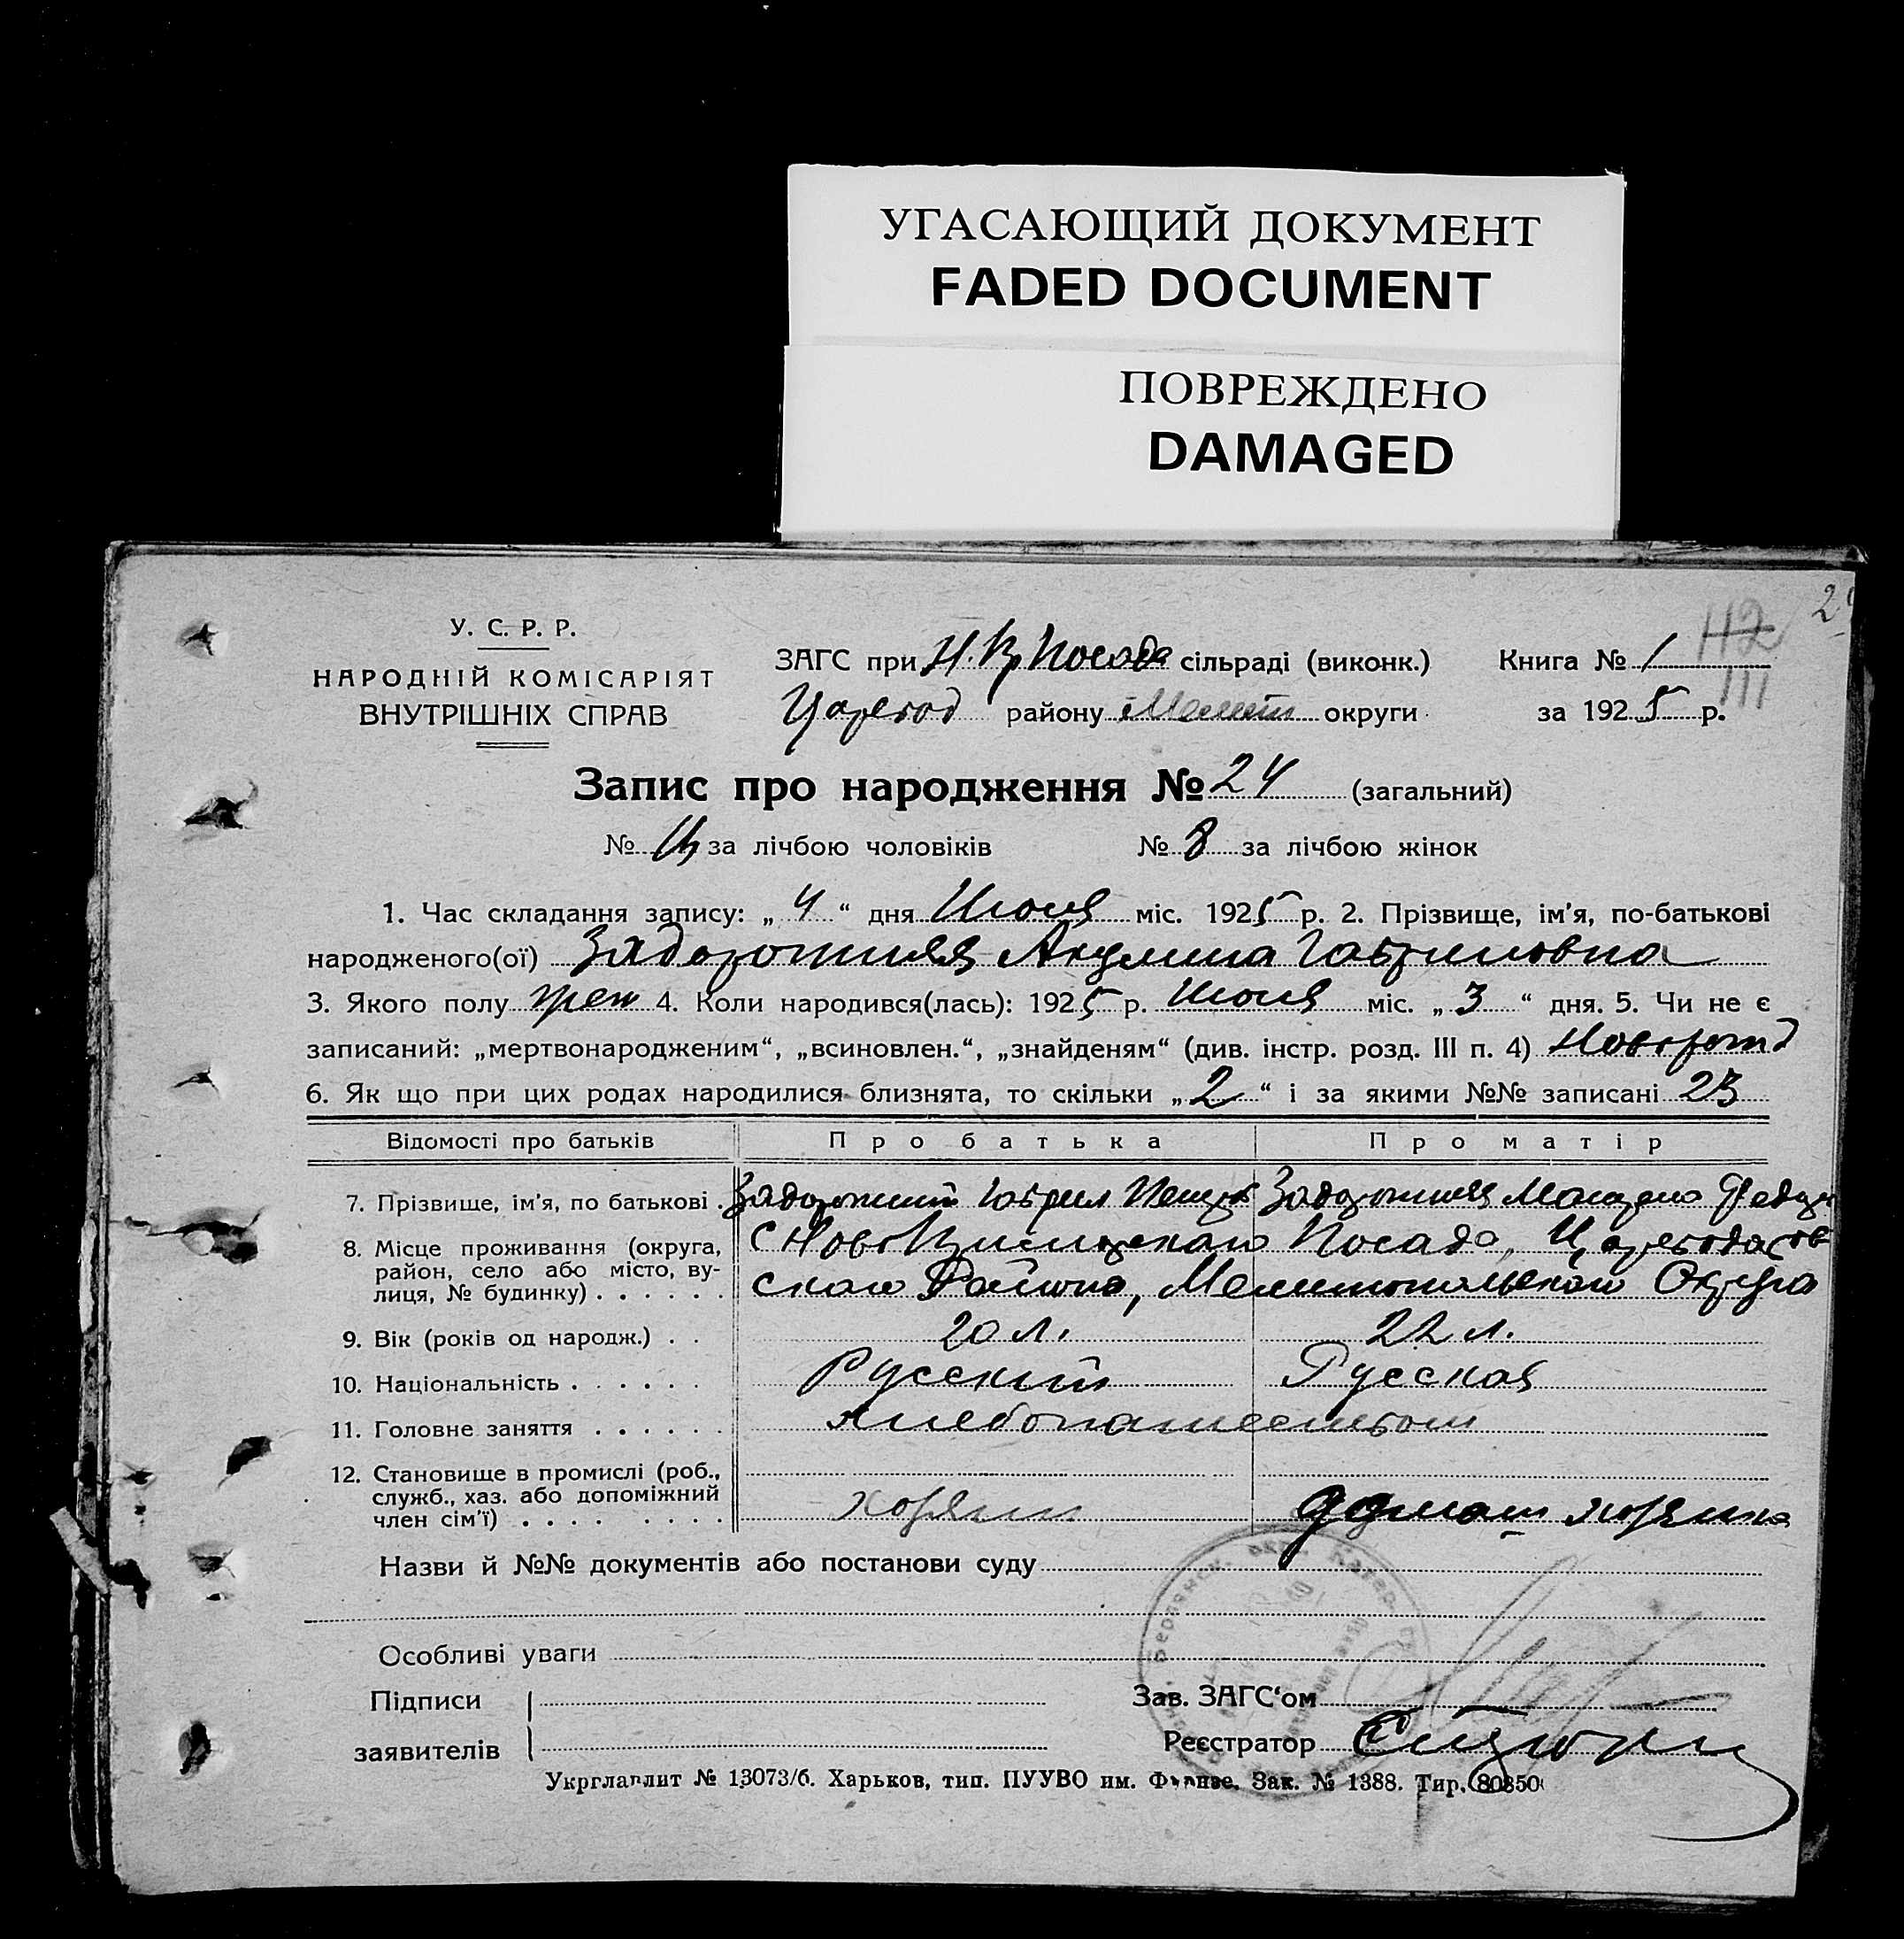 УГАСАЮЩИЙ ДОКУМЕНТ
FADED DOCUMENT
ПОВРЕЖДЕНО
DAMAGED
2
У. С. Р. Р.
НАРОДНІЙ КОМІСАРІЯТ
ВНУТРІШНІХ СПРАВ
ЗАГС при Посада сільраді (виконк.)
Царегод району Мелит округи
Книга № 1
за 1925 р.
112
III
Запис про народження № 24 (загальний)
№ за лічбою чоловіків № 8 за лічбою жінок
1. Час складання запису: „ 4 “ дня Июня міс. 1925 р. 2. Прізвище, ім'я, по-батькові
народженого(ої) Задорожняя Акулина Гавриловна
3. Якого полу жен 4. Коли народився(лась): 1925 р. Июня міс. „ 3 “ дня. 5. Чи не є
записаний: „мертвонародженим“, „всиновлен.“, „знайденям“ (див. інстр. розд. III п. 4)Новорожд
6. Як що при цих родах народилися близнята, то скільки „ 2 “ і за якими №№ записані 23
Відомості про батьків Про батька Про матір
7. Прізвище, ім'я, по батькові . Задорожний Гаврил Задорожняя
8. Місце проживання (округа, район, село або місто, вулиця, № будинку) . . . . . . с Посада, Царегодасов
ского Района, Мелитопольского Округа
9. Вік (років од народж.) . . 20 л. 22 л.
10. Національність . . . . . . Русский Русская
11. Головне заняття . . . . . . хлебопашеством
12. Становище в промислі (роб.,
служб., хаз. або допоміжний
член сім'ї) . . . . . . . . хозяин домаш хозяика
Назви й №№ документів або постанови суду
Особливі уваги
Підписи
заявителів
Зав. ЗАГС'ом
Реєстратор
Укрглавлит № 13073/б. Харьков, тип. ПУУВО им. Фрунзе. Зак. № 1388. Тир. 80850